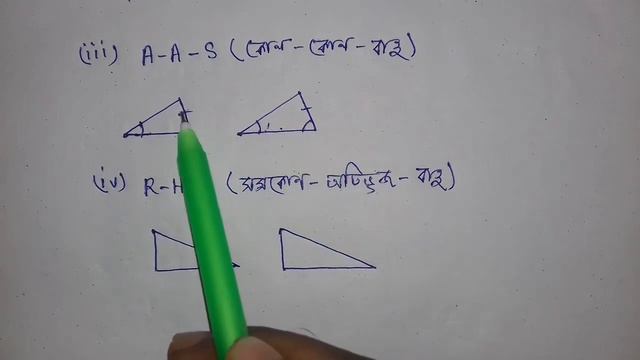 (iii) A-A-S (কোন-কোন-বাহু)
(iv) R-H (সমকোন-অতিভূজ-বাহু)